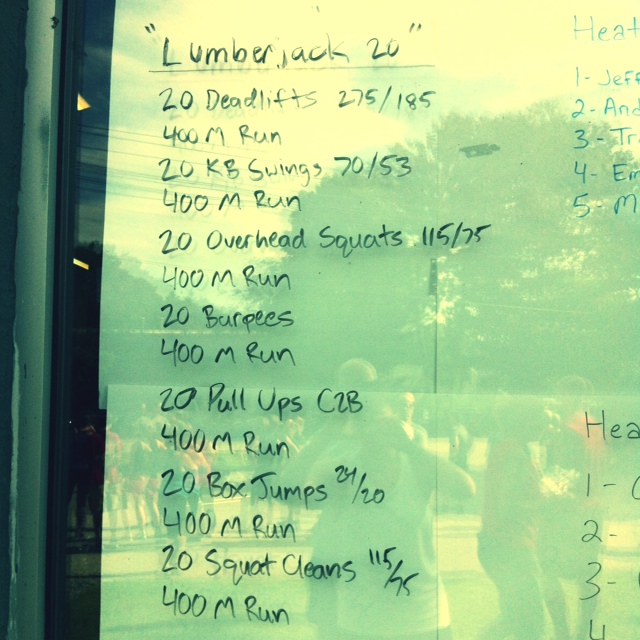 "Lumberjack 20"
20 Deadlifts 275/185
400 M Run
20 KB Swings 70/53
400 M Run
20 Overhead Squats 115/75
400 M Run
20 Burpees
400 M Run
20 Pull Ups C2B
400 M Run
20 Box Jumps 24/20
400 M Run
20 Squat Cleans 115/75
400 M Run
Heat
1- Jeff
2- And
3- Tr
4- Em
5- M
Hea
1-
2-
3-
4